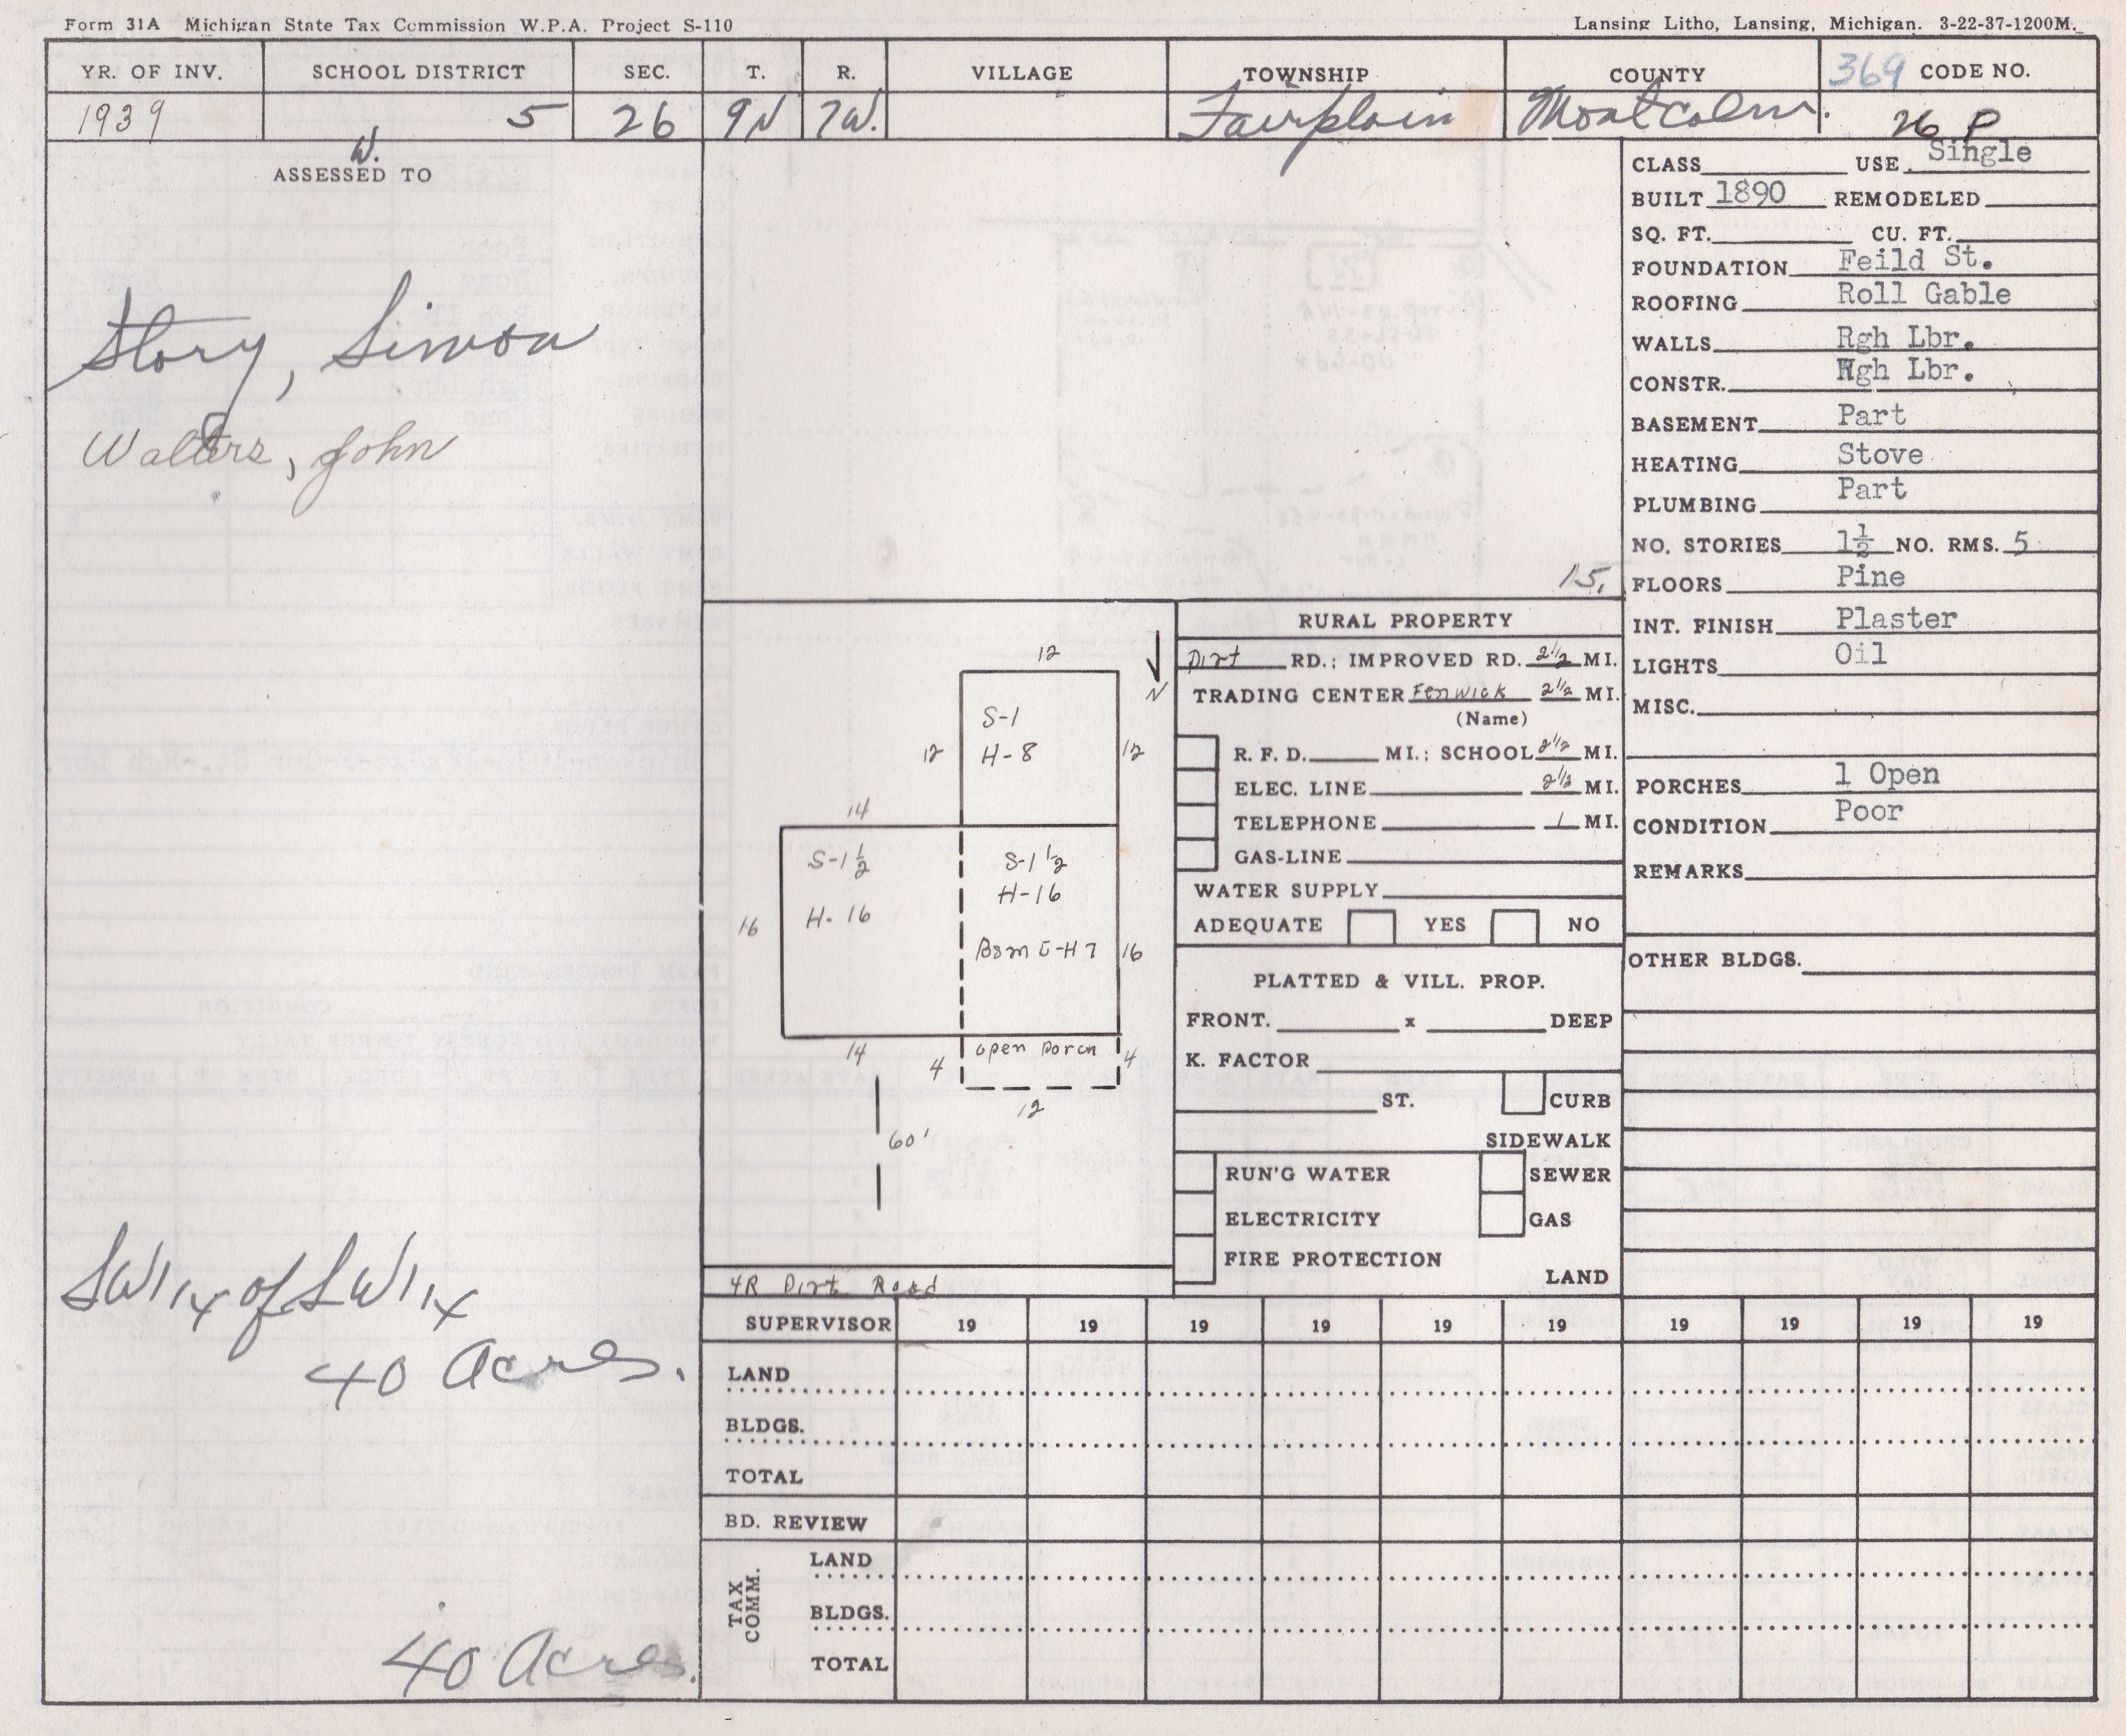 Form 31A Michigan State Tax Commission W.P.A. Project S-110
Lansing Litho, Lansing, Michigan. 3-22-37-1200M.
YR. OF INV. SCHOOL DISTRICT SEC. T. R. VILLAGE TOWNSHIP COUNTY 369 CODE NO.
1939 5 26 9N 7W. Fairplain Montcalm. 26 P
W.
ASSESSED TO
Story, Simon
Walters, John
SW 1/4 of SW 1/4
40 Acres.
40 Acres.
15.
12
N
S-1
H-8
12 12
14
S-1 1/2
H-16
S-1 1/2
H-16
Bsmt-H7
16 16
14
open Porch
4 4
12
60'
4R Dirt Road
RURAL PROPERTY
Dirt RD.; IMPROVED RD. 2 1/2 MI.
TRADING CENTER Fenwick 2 1/2 MI.
(Name)
R. F. D. MI.; SCHOOL 2 1/2 MI.
ELEC. LINE 2 1/2 MI.
TELEPHONE 1 MI.
GAS-LINE
WATER SUPPLY
ADEQUATE YES NO
PLATTED & VILL. PROP.
FRONT. x DEEP
K. FACTOR
ST. CURB
SIDEWALK
RUN'G WATER SEWER
ELECTRICITY GAS
FIRE PROTECTION
LAND
CLASS USE Single
BUILT 1890 REMODELED
SQ. FT. CU. FT.
FOUNDATION Feild St.
ROOFING Roll Gable
WALLS Rgh Lbr.
CONSTR. Rgh Lbr.
BASEMENT Part
HEATING Stove
PLUMBING Part
NO. STORIES 1½ NO. RMS. 5
FLOORS Pine
INT. FINISH Plaster
LIGHTS Oil
MISC.
PORCHES 1 Open
CONDITION Poor
REMARKS
OTHER BLDGS.
SUPERVISOR 19 19 19 19 19 19 19 19 19 19
LAND
BLDGS.
TOTAL
BD. REVIEW
TAX COMM.
LAND
BLDGS.
TOTAL